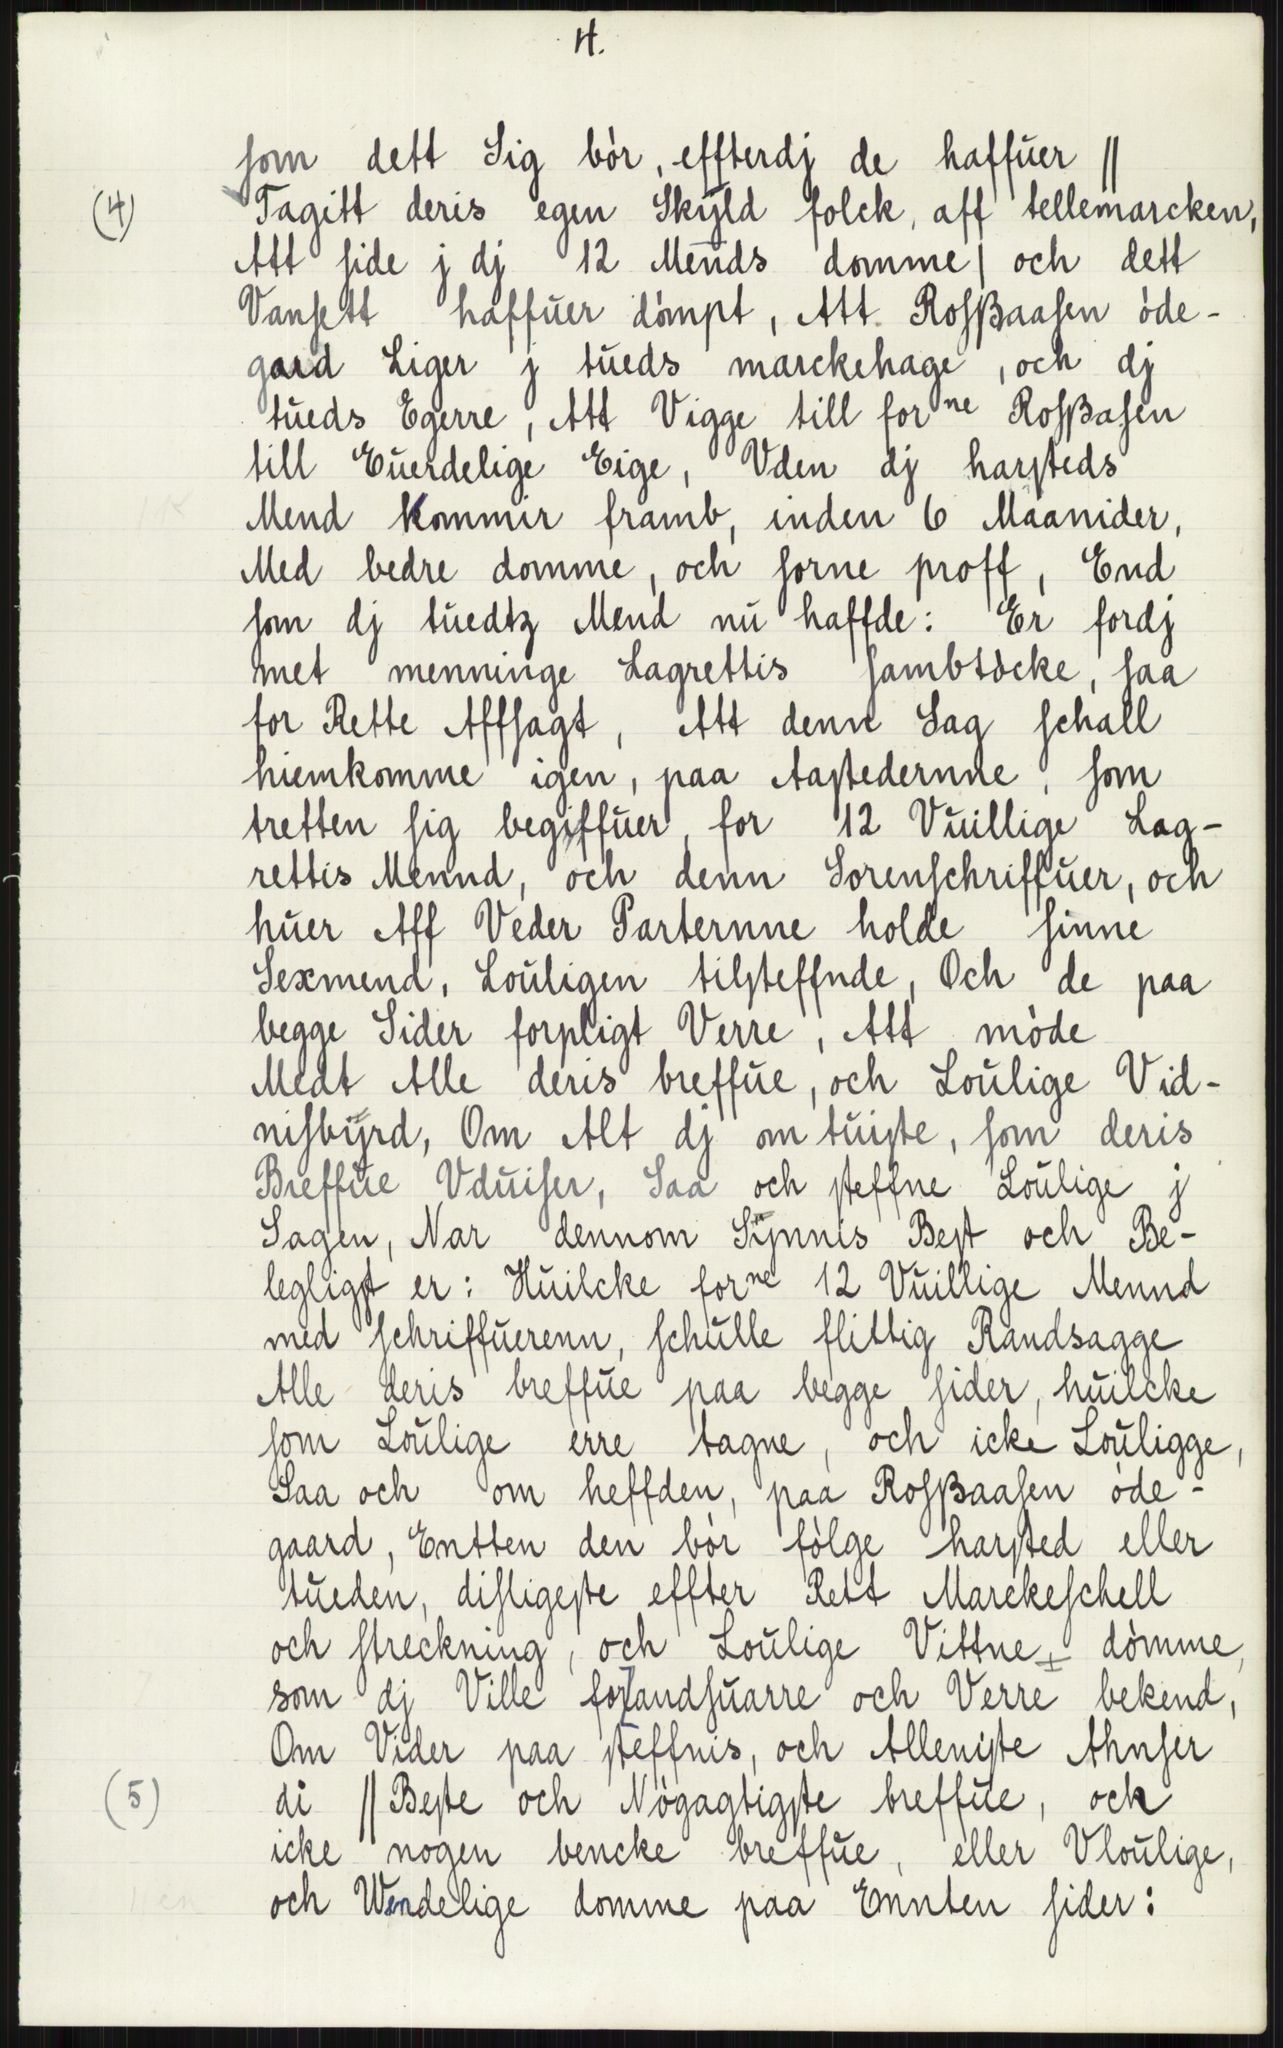 4.
som dett Sig bör, effterdj de haffuer ||
(4) Tagitt deris egen Skÿld folck, aff tellemarcken,
Att side j dj 12 Mends domme/ och dett
Vansett haffuer dömpt, Att Rosßaasen öde-
gaard Liger j tueds marckehage, och dj
tueds Egerre, Att Vigge till forne Rosßasen
till Euerdelige Eige, Vden dj harsteds
Mend kommir framb, inden 6 Maanider,
Med bedre domme, och sorne proff, End
som dj tuedtz Mend nu haffde: Er fordj
met menninge Lagrettis sambtöcke, saa
for Rette Affsagt, Att denn Sag schall
hiemkomme igen, paa Aastedernne, som
tretten sig begiffuer, for 12 Vuillige Lag-
rettis Mennd, och denn Sorenschriffuer, och
huer Aff Veder Parternne holde sinne
Sexmend, Louligen tilsteffnde, Och de paa
begge Sider forpligt Verre, Att möde
Medt Alle deris breffue, och Loulige Vid-
nisbÿrd, Om Alt dj om tuiste, som deris
Breffue Vduiser, Saa och steffne Loulige j
Sagen, Nar dennom Sÿnnis Best och Be-
legligst er: Huilcke forne 12 Vuillige Mennd
med schriffuerenn, schulle flittig Randsagge
Alle deris breffue paa begge sider, huilcke
som Loulige erre tagne, och icke Louligge,
Saa och om heffden, paa Rosßaasen öde-
gaard, Entten den bör fölge harsted eller
tueden, disligeste effter Rett Marckeschell
och streckning, och Loulige Vittne ± dömme,
som dj Ville for andsuarre och Verre bekend,
Om Vider paa steffnis, och Alleniste Ahnser
(5) di || Beste och Nögagtigste breffue, och
icke nogen bencke breffue, eller Vloulige,
och Wendelige domme paa Ennten sider: